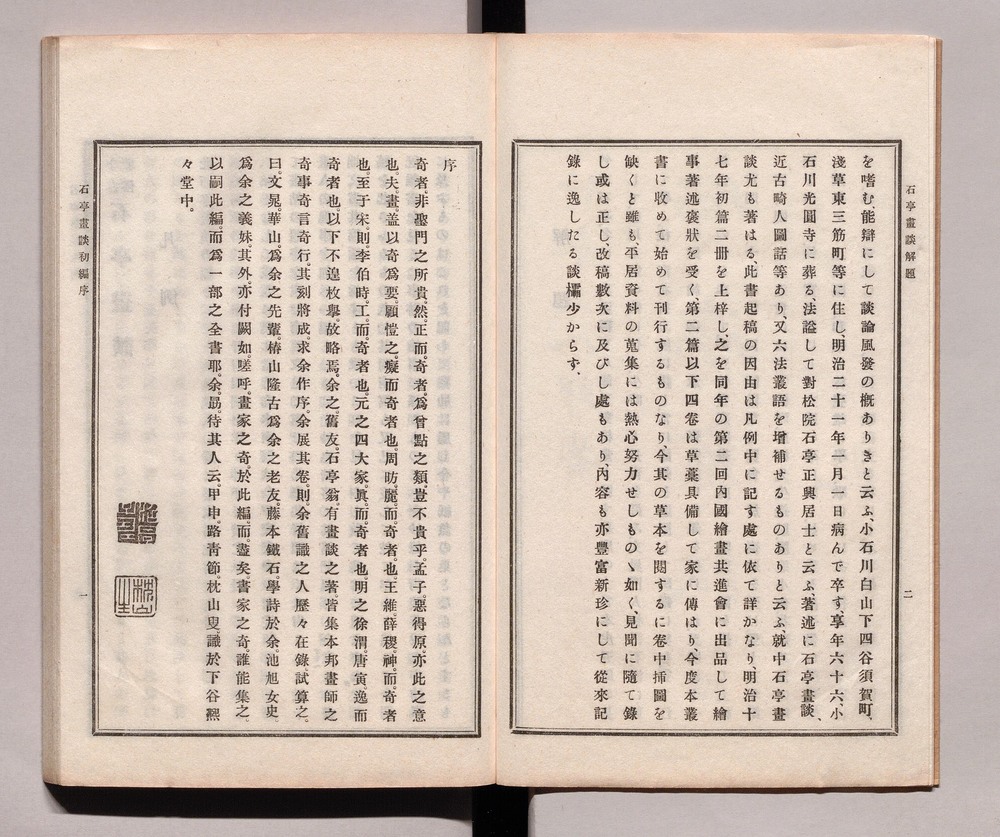 石亭畫談解題
二
を嗜む、能辯にして談論風發の槪ありきと云ふ、小石川白山下四谷須賀町、
淺草東三筋町等に住し、明治二十一年一月一日病んで卒す、享年六十六、小
石川光圓寺に葬る、法謚して對松院石亭正興居士と云ふ、著述に石亭畫談、
近古畸人圖話等あり、又六法叢語を增補せるものありと云ふ、就中石亭畫
談尤も著はる、此書起稿の因由は凡例中に記す處に依て詳かなり、明治十
七年初篇二册を上梓し、之を同年の第二回內國繪畫共進會に出品して繪
事著述褒狀を受く、第二篇以下四卷は草藁具備して家に傳はり、今度本叢
書に收めて始めて刊行するものなり、今其の草本を閱するに卷中揷圖を
缺くと雖も、平居資料の蒐集には熱心努力せしものヽ如く、見聞に隨て錄
し或は正し、改稿數次に及びし處もあり、內容も亦豐富新珍にして從來記
錄に逸したる談欛少からず、
序
奇者。非聖門之所貴。然。正而。奇者。爲曾點之類。豈不貴乎。孟子。惡得原。亦此之意
也。夫。畫。蓋以奇爲要。顧愷之。癡而奇者也。周昉。麗。而奇者。也。王維。薛稷。神。而。奇者
也。至于宋。則。李伯時。工。而。奇者也。元之四大家。眞。而奇者也。明之徐渭。唐寅。逸而
奇者也。以下不遑枚擧。故略焉。余之。舊友。石亭翁。有畫談之著。皆集本邦畫師之
奇事奇言奇行。其刻將成。求余作序。余展其卷。則余舊識之人。歷々在錄。試算之。
曰。文晁華山。爲余之先輩。椿山隆古爲余之老友。藤本鐵石。學詩於余。池旭女史。
爲余之義妹。其外。亦付闕如。嗟呼。畫家之奇。於此編。而。盡矣。書家之奇。誰能集之。
以嗣此編。而。爲一部之全書耶。余。勗。待其人云。甲申。路靑節。枕山叟。識於下谷熙
々堂中。
石亭畫談初編序
一